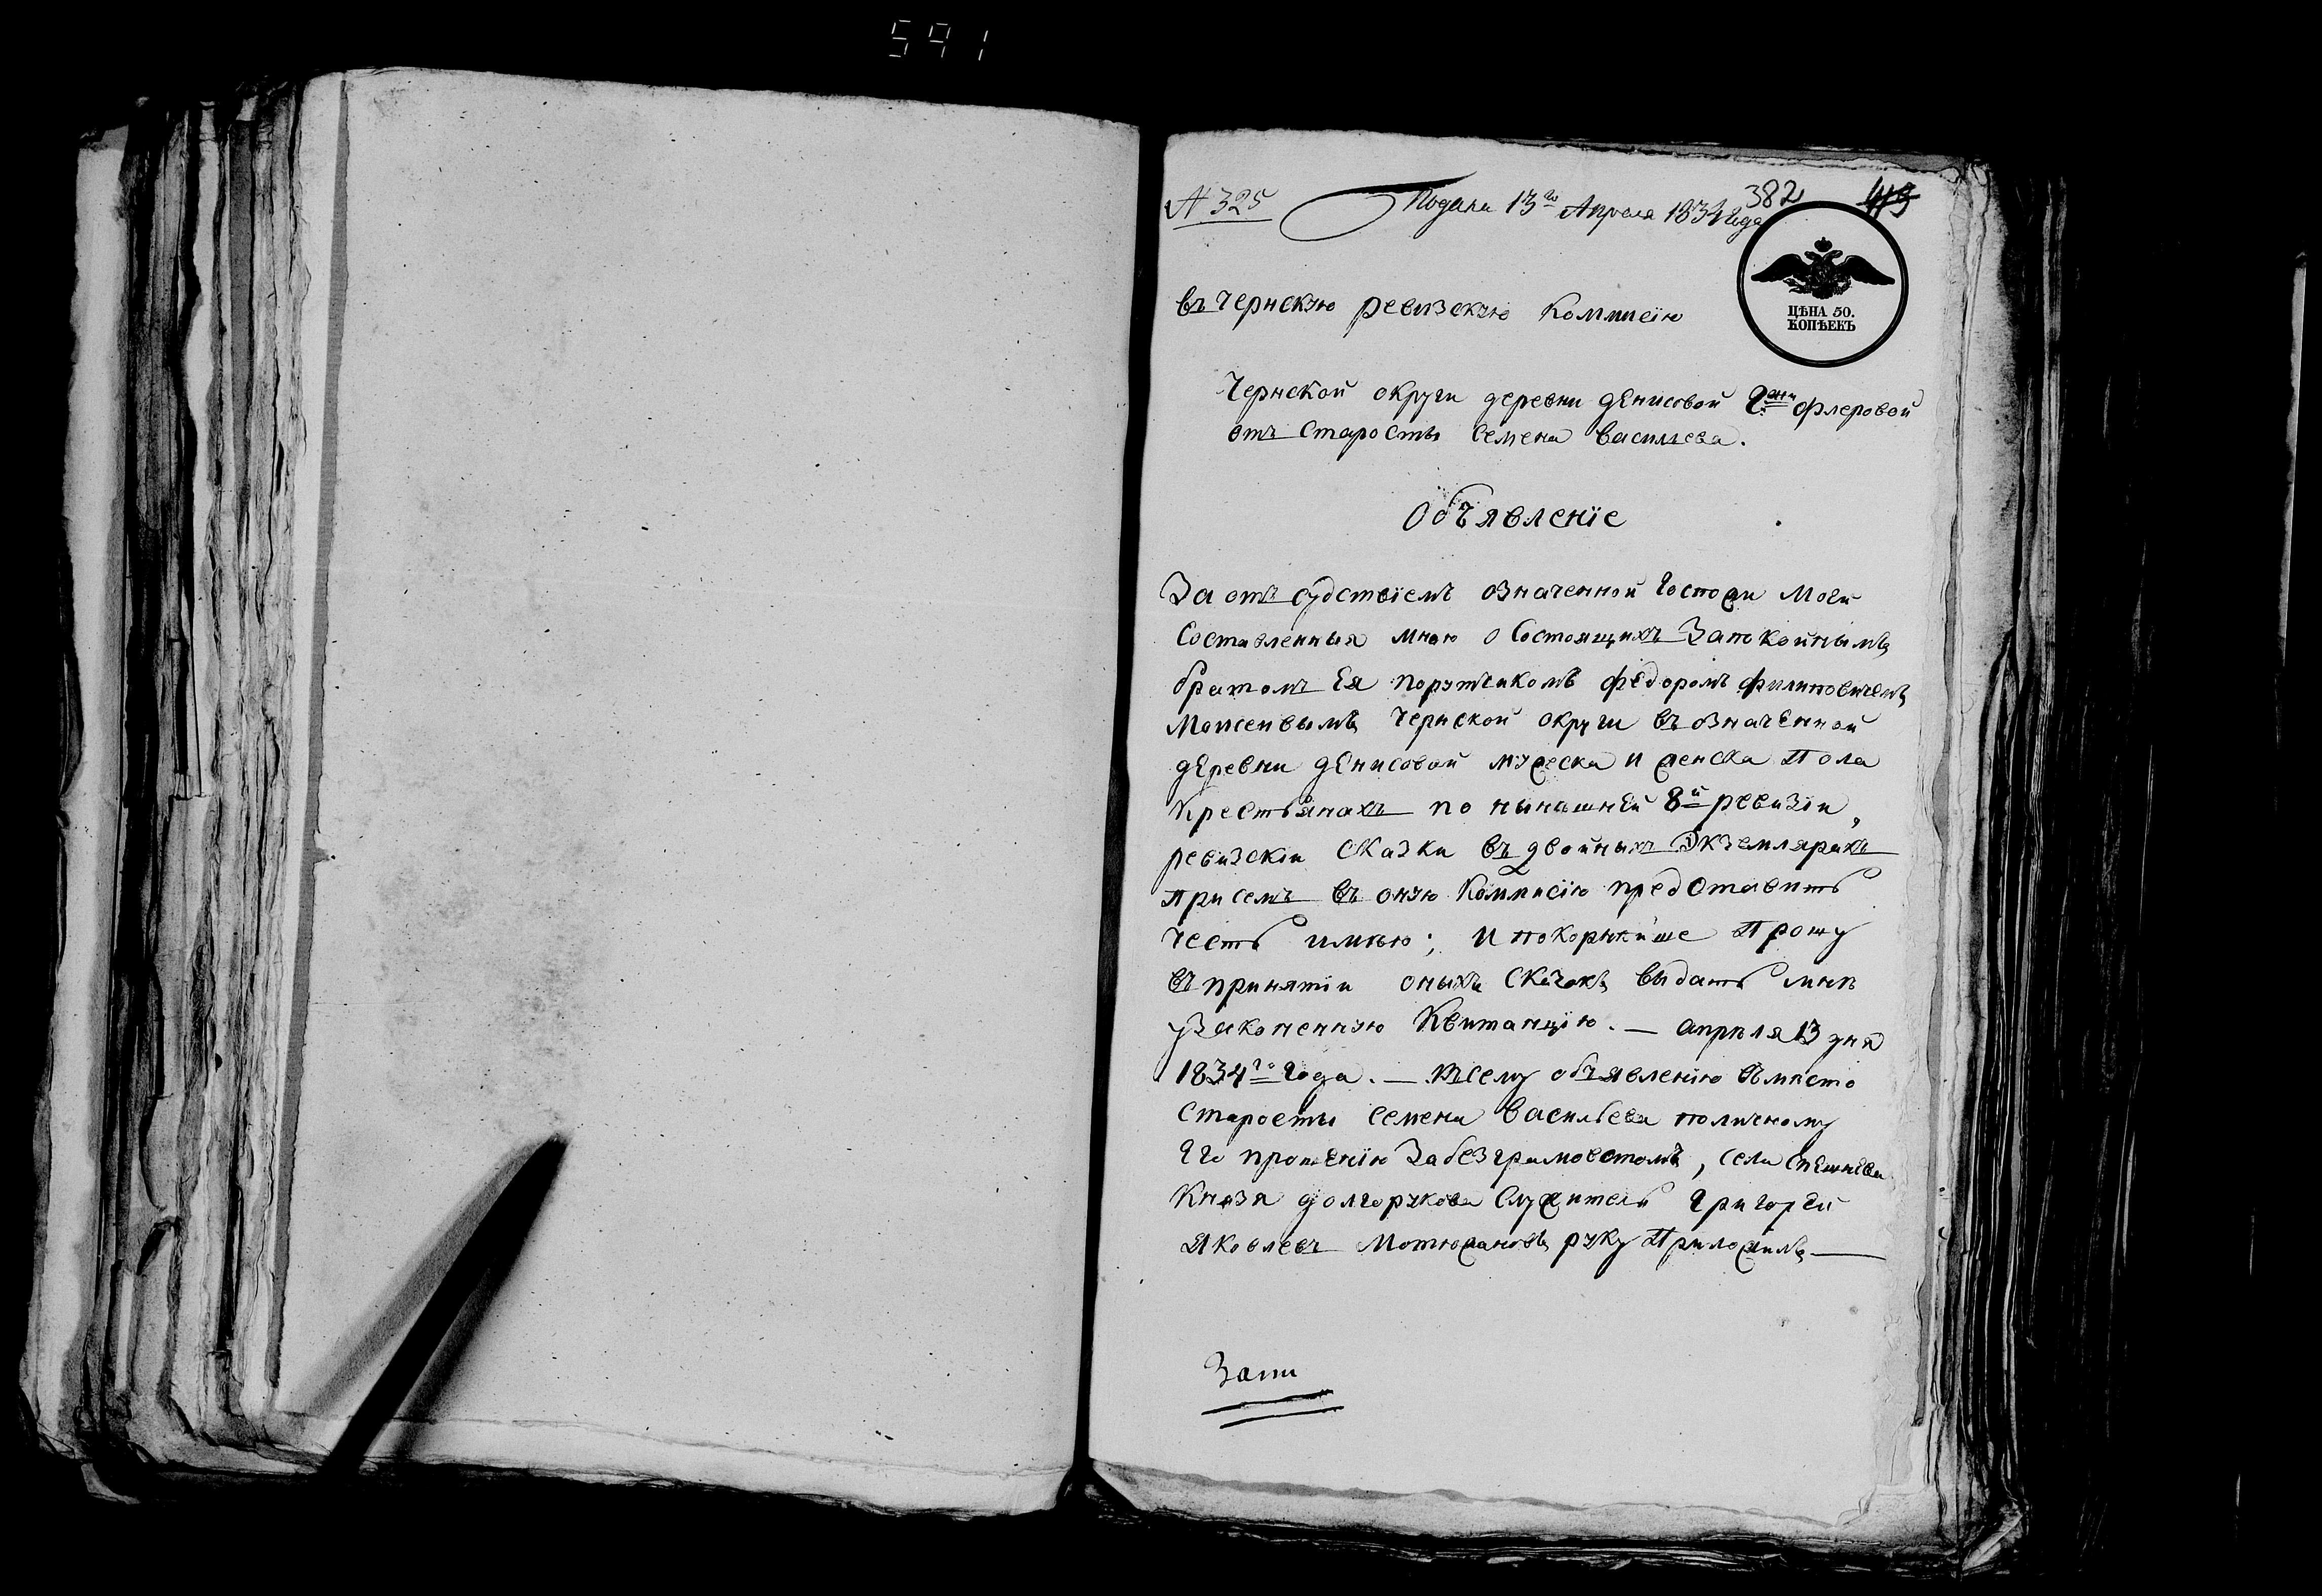 591
№ 325
Подана 13го Апреля 1834 года
382
419
ЦѢНА 50.
КОПѢЕКЪ
въ Чернскую ревизскую Коммисїю
Чернской округи деревни денисовой Г:жи Флеровой
отъ Старосты Семена Васильева.
Объявленїе
За отъ судствїемъ означенной Госпожи Моей
Составленныя мною о Состоящихъ Запокойнымъ
братомъ Ея порутчикомъ федоромъ филиповичемъ
Чернской округи въ означенной
дЕревни дЕнисовой мужеска и женска Пола
Крестьянахъ по нынешнЕй 8й ревизїи,
ревизскїи сказки въ двойныхъ Экземплярахъ
присемъ въ оную Коммисїю представить
честь имѣю; и покорнѣйше Прошу
въ принятїи оныхъ скасокъ выдать мнѣ
узаконенную Квитанцїю. — апрѣля 13 дня
1834го Года. — Ксему объявленїю вмѣсто
Старосты Семена Васильева поличному
Его прошЕнїю Забезграмотствомъ, села спЕшнЕва
Князя долгорукова Служитель Григорей
Яковлевъ руку Приложилъ —
Запи